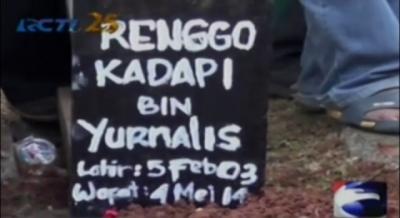 RCTI 25
RENGGO
KADAPI
BIN
YURNALIS
Lahir : 5 Feb 03
Wapat : 4 Mei 14